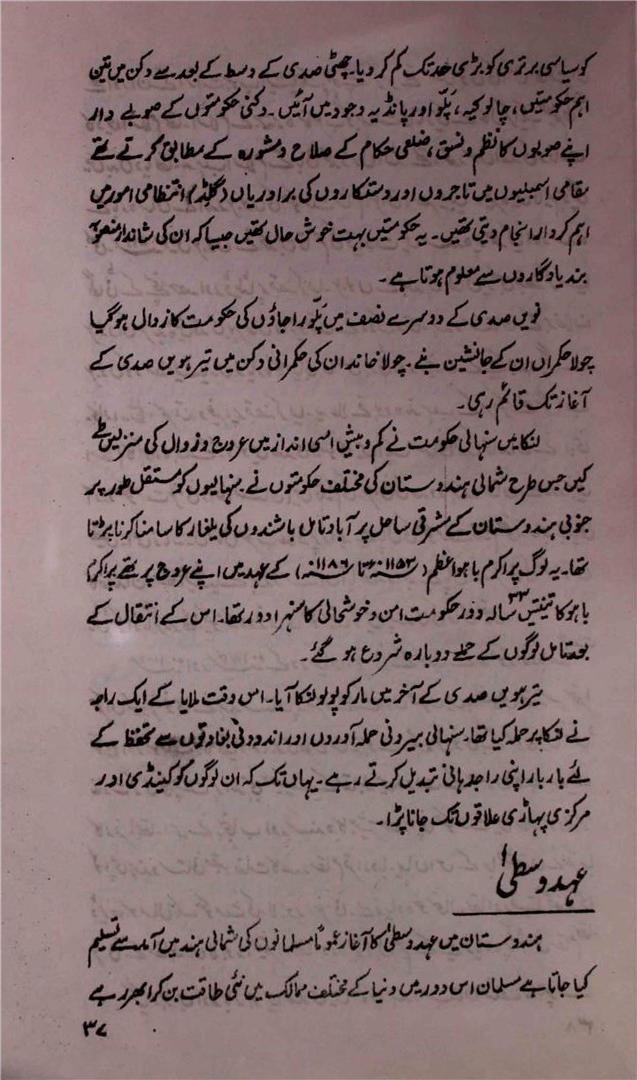 کو سیاسی برتری کو بڑی حد تک کم کر دیا۔ چھٹی صدی کے وسط کے بعد سے دکن میں تین
اہم حکومتیں، چالوکیہ، پلّو اور پانڈیہ وجود میں آئیں۔ دکنی حکومتوں کے صوبے دار
اپنے صوبوں کا نظم و نسق، ضلعی حکام کے صلاح و مشورہ کے مطابق کرتے تھے
مقامی اسمبلیوں میں تاجروں اور دستکاروں کی برادریاں (گلڈ) انتظامی امور میں
اہم کردار انجام دیتی تھیں۔ یہ حکومتیں بہت خوش حال تھیں جیسا کہ ان کی شاندار منصوبہ
بند یادگاروں سے معلوم ہوتا ہے۔
نویں صدی کے دوسرے نصف میں پلّو راجاؤں کی حکومت کا زوال ہو گیا
چولا حکمراں ان کے جانشین بنے۔ چولا خاندان کی حکمرانی دکن میں تیرہویں صدی کے
آغاز تک قائم رہی۔
لنکا میں سنہالی حکومت نے کم و بیش اسی انداز میں عروج و زوال کی منزلیں طے
کیں جس طرح شمالی ہندوستان کی مختلف حکومتوں نے۔ سنہالیوں کو مستقل طور پر
جنوبی ہندوستان کے مشرقی ساحل پر آباد تامل باشندوں کی یلغار کا سامنا کرنا پڑتا
تھا۔ یہ لوگ پراکرم باہو اعظم (۱۱۵۳ء تا ۱۱۸۶ء) کے عہد میں اپنے عروج پر تھے پراکرم
باہو کا تینتیس ۳۳ سالہ دور حکومت امن و خوشحالی کا سنہرا دور تھا۔ اس کے انتقال کے
بعد تامل لوگوں کے حملے دوبارہ شروع ہو گئے۔
تیرہویں صدی کے آخر میں مارکو پولو لنکا آیا۔ اس وقت ملایا کے ایک راجہ
نے لنکا پر حملہ کیا تھا۔ سنہالی بیرونی حملہ آوروں اور اندرونی بغاوتوں سے تحفظ کے
لئے بار بار اپنی راجدہانی تبدیل کرتے رہے۔ یہاں تک کہ ان لوگوں کو کینڈی اور
مرکزی پہاڑی علاقوں تک جانا پڑا۔
عہد وسطیٰ
ہندوستان میں عہد وسطیٰ کا آغاز عموماً مسلمانوں کی شمالی ہند میں آمد سے تسلیم
کیا جاتا ہے مسلمان اس دور میں دنیا کے مختلف ممالک میں نئی طاقت بن کر ابھر رہے
۳۷